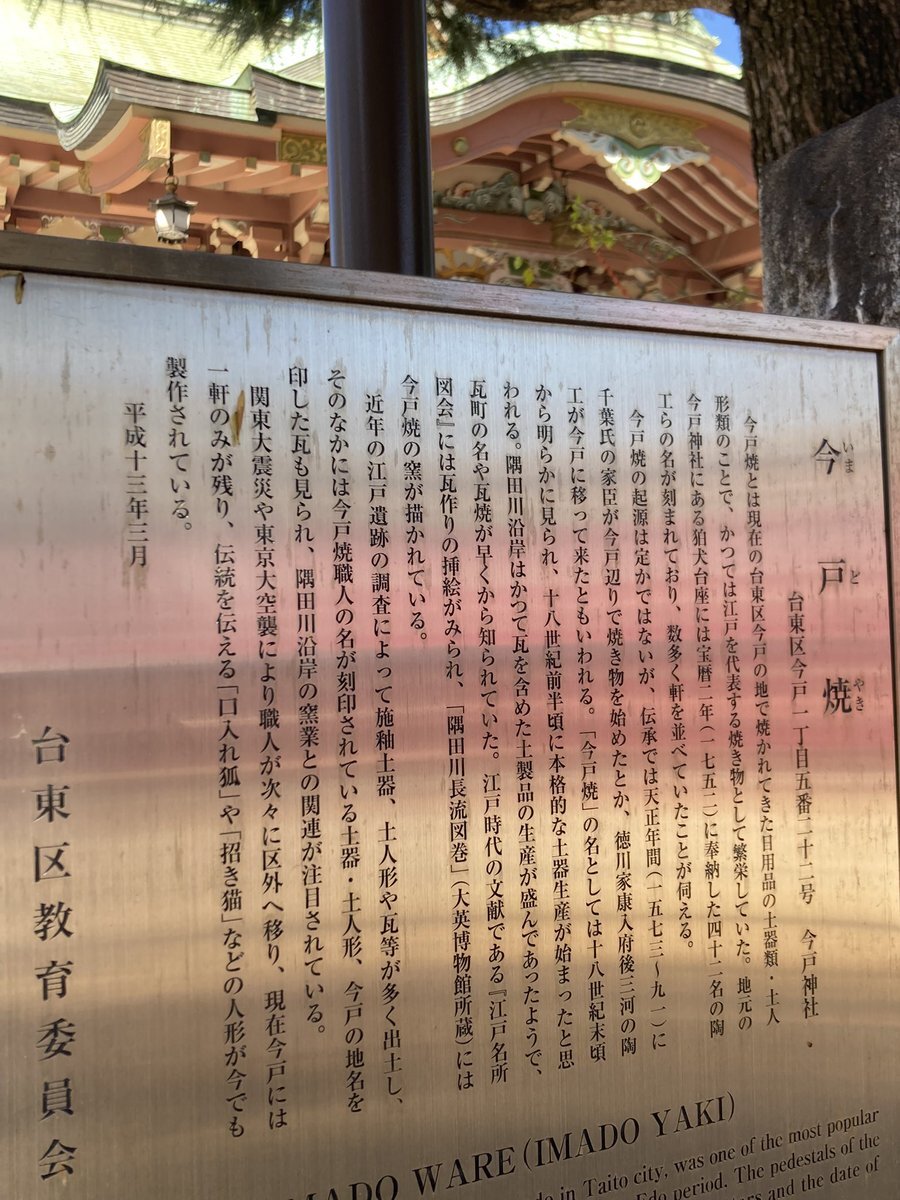 今戸焼
いま ど やき
台東区今戸一丁目五番二十二号 今戸神社
今戸焼とは現在の台東区今戸の地で焼かれてきた日用品の土器類・土人
形類のことで、かつては江戸を代表する焼き物として繁栄していた。地元の
今戸神社にある狛犬台座には宝暦二年(一七五二)に奉納した四十二名の陶
工らの名が刻まれており、数多く軒を並べていたことが伺える。
今戸焼の起源は定かではないが、伝承では天正年間(一五七三〜九一)に
千葉氏の家臣が今戸辺りで焼き物を始めたとか、徳川家康入府後三河の陶
工が今戸に移って来たともいわれる。「今戸焼」の名としては十八世紀末頃
から明らかに見られ、十八世紀前半頃に本格的な土器生産が始まったと思
われる。隅田川沿岸はかつて瓦を含めた土製品の生産が盛んであったようで、
瓦町の名や瓦焼が早くから知られていた。江戸時代の文献である『江戸名所
図会』には瓦作りの挿絵がみられ、「隅田川長流図巻」(大英博物館所蔵)には
今戸焼の窯が描かれている。
近年の江戸遺跡の調査によって施釉土器、土人形や瓦等が多く出土し、
そのなかには今戸焼職人の名が刻印されている土器・土人形、今戸の地名を
印した瓦も見られ、隅田川沿岸の窯業との関連が注目されている。
関東大震災や東京大空襲により職人が次々に区外へ移り、現在今戸には
一軒のみが残り、伝統を伝える「口入れ狐」や「招き猫」などの人形が今でも
製作されている。
平成十三年三月
台東区教育委員会
WARE(IMADO YAKI)
in Taito city, was one of the most popular
Edo period. The pedestals of the
and the date of